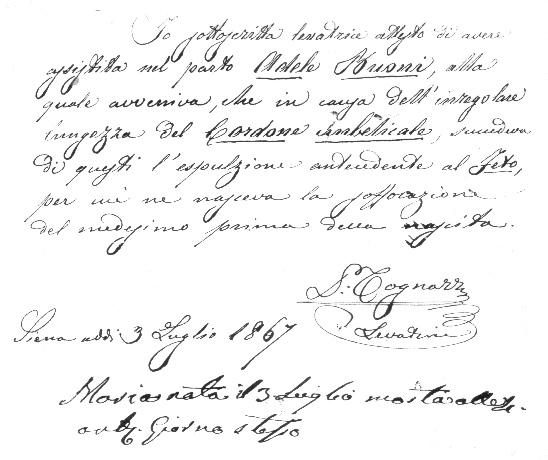 Io sottoscritta levatrice attesto di avere
assistita nel parto Adele Buoni, alla
quale avveniva, che in causa dell'irregolare
lungezza del Cordone Umbelicale, succedeva
di questi l'espulzione antecedente al Feto,
per cui ne nasceva la soffocazione
del medesimo prima della nascita.
S. Tognazzi
Levatrice
Siena addì 3 Luglio 1867
Maria nata il 3 Luglio morta
Giorno stesso